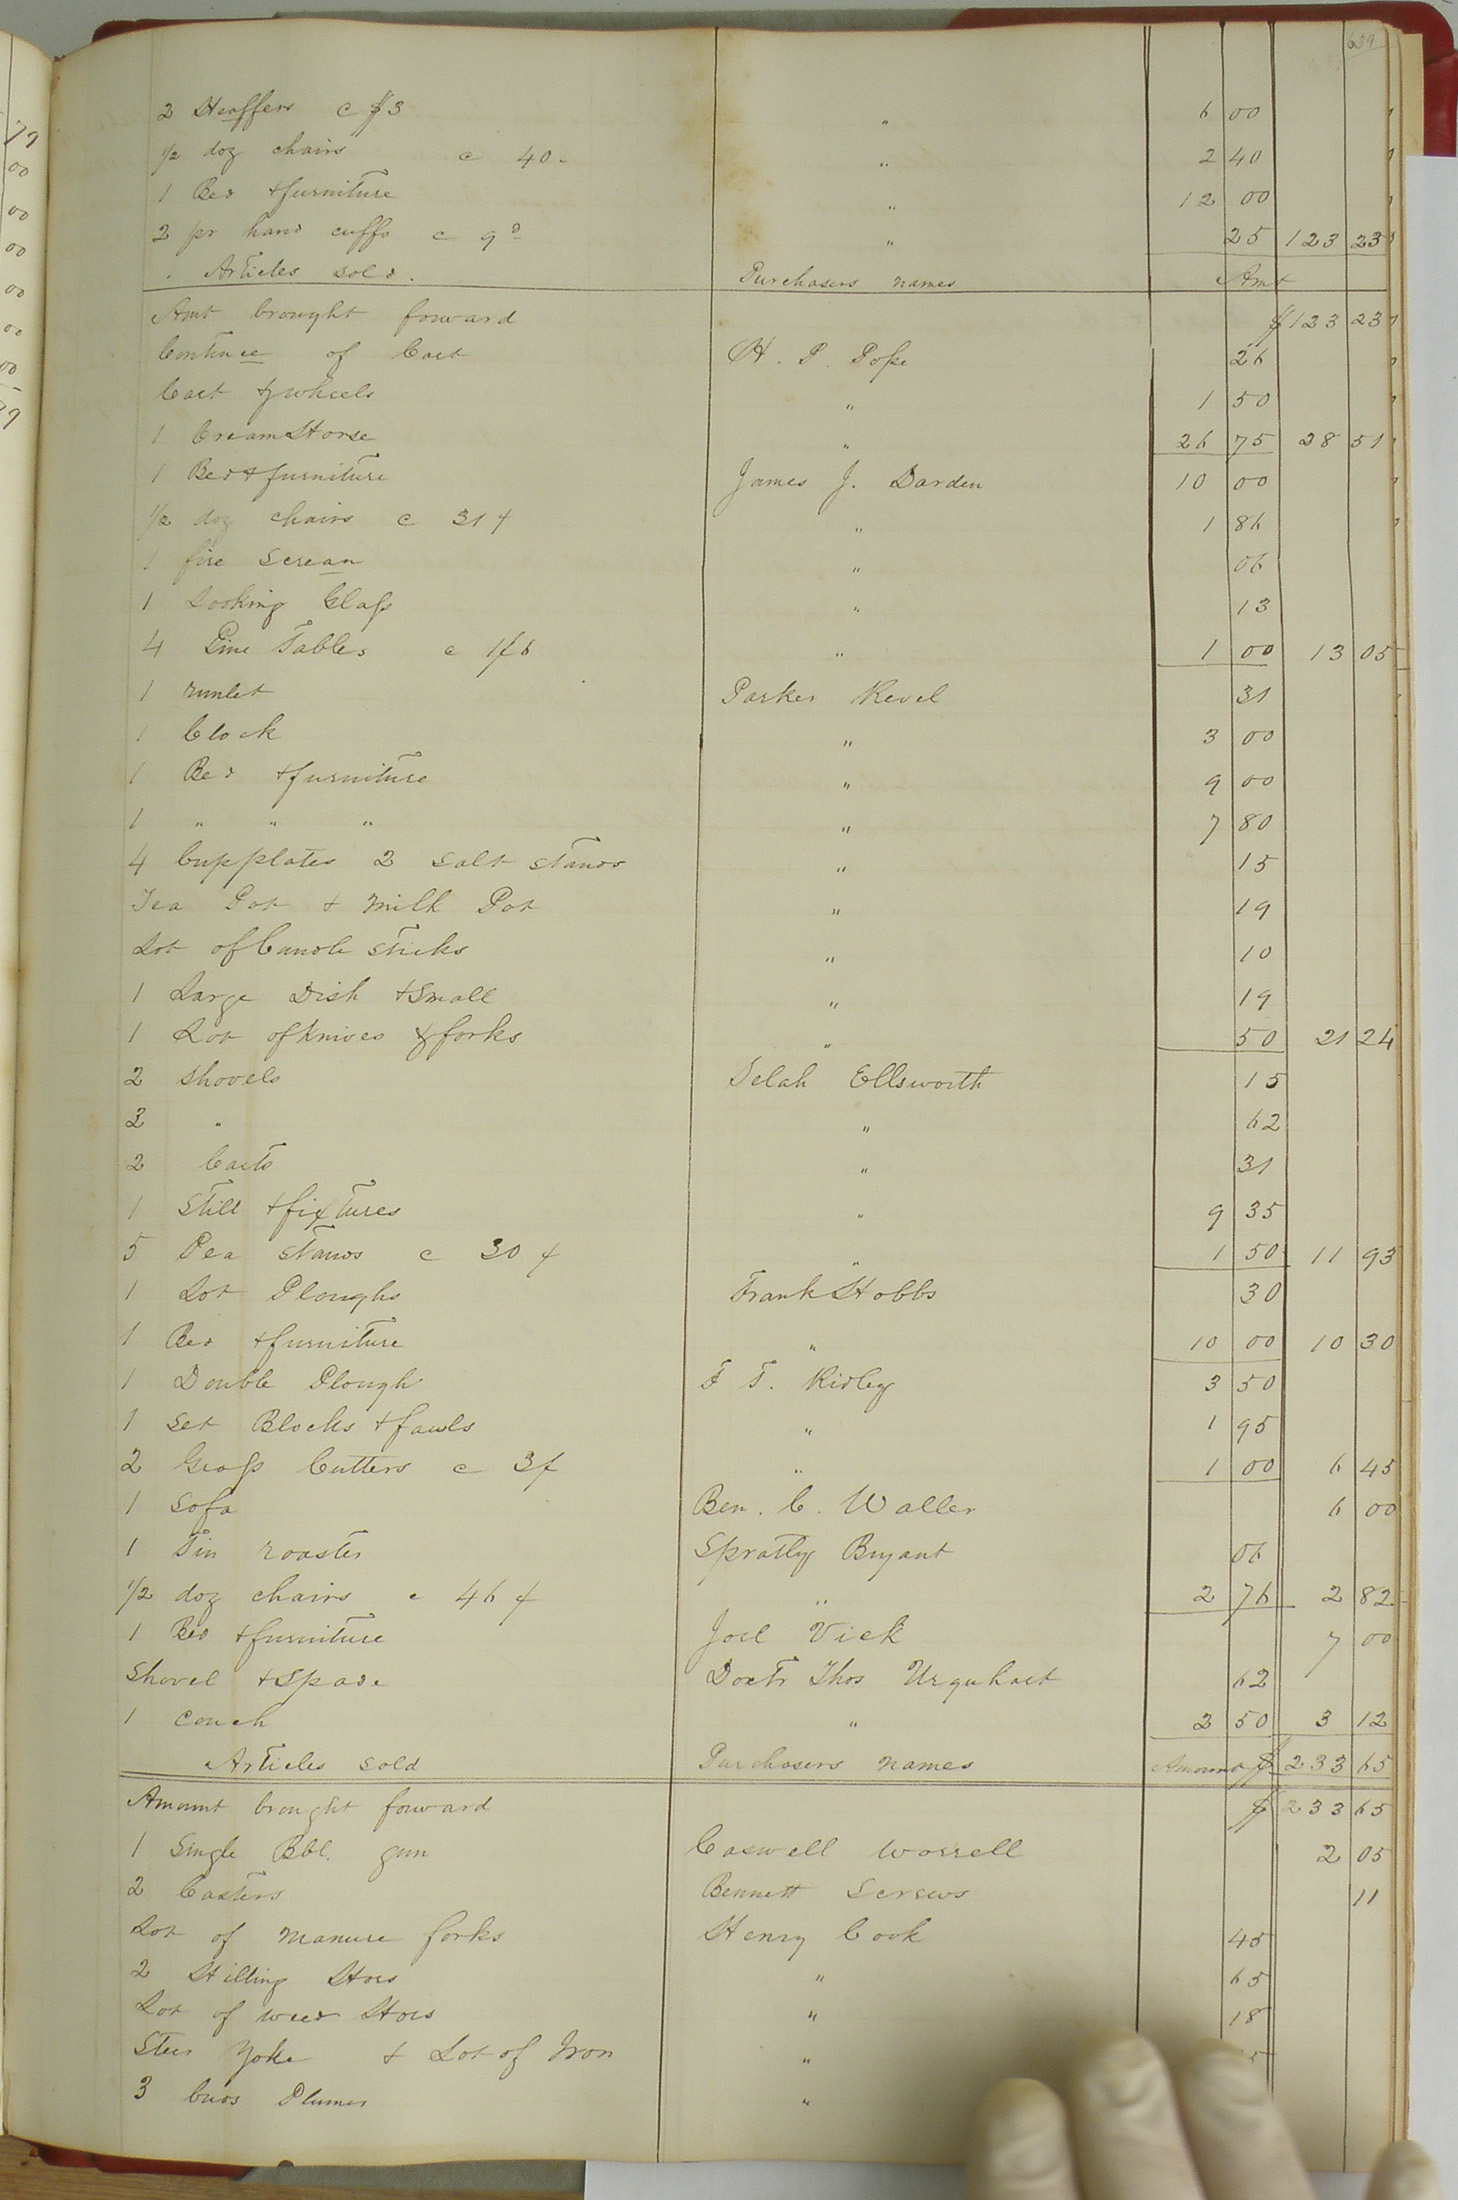 639
2 Heaffers c $3 " 6 00
1/2 doz chairs c 40. " 2 40
1 Bed & furniture " 12 00
2 pr hand cuffs c 9d " 25 123 23
Articles sold. Purchasers names Amt
Amt brought forward $123 23
Contince of Cart H. P. Pope 26
Cart & wheels " 1 50
1 Cream Horse " 26 75 28 51
1 Bed & furniture James J. Darden 10 00
1/2 doz chairs c 31 ¢ " 1 86
1 fire screan " 06
1 Looking Glass " 13
4 Pine Tables c 1/6 " 1 00 13 05
1 runlet Parker Revel 31
1 Clock " 3 00
1 Bed & furniture " 9 00
1 " " " " 7 80
4 Cupplates 2 salt stands " 15
Tea Pot & milk Pot " 19
Lot of Candle sticks " 10
1 Large Dish & small " 19
1 Lot of knives & forks " 50 21 24
2 shovels Selah Ellsworth 15
2 " " 62
2 Carts " 31
1 Still & fixtures " 9 35
5 Pea stands c 30 ¢ " 1 50 11 93
1 Lot Ploughs Frank Hobbs 30
1 Bed & furniture " 10 00 10 30
1 Double Plough F T. Ridley 3 50
1 set Blocks & fawls " 1 95
2 Grass Cutters c 3/ " 1 00 6 45
1 Sofa Ben. C. Waller 6 00
1 Tin roaster Spratly Bryant 06
1/2 doz chairs c 46 ¢ " 2 76 2 82
1 Bed & furniture Joel Vick 7 00
Shovel & Spade Doctr Thos Urquhart 62
1 couch " 2 50 3 12
Articles sold Purchasers names Amount $ 233 65
Amount brought forward $ 233 65
1 Single Bbl. gun Caswell Worrell 2 05
2 Casters Bennett Screws 11
Lot of manure forks Henry Cook 45
2 Hilling Hoes " 65
Lot of weed Hoes " 18
Steer Yoke & Lot of Iron " 5
3 Cuds Plumes "
79
00
00
00
00
00
00